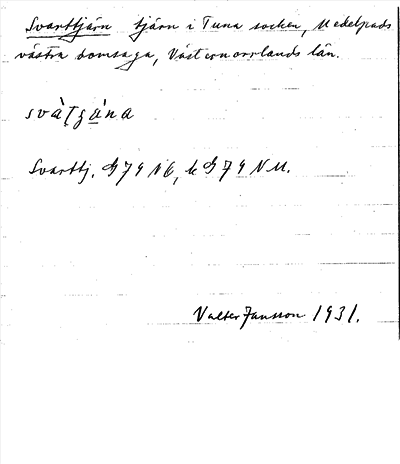 Svarttjärn tjärn i Tuna socken, Medelpads
västra domsaga, Västernorrlands län.
Svarttj. G 79 NÖ, k G 79 NM.
Valter Jansson 1931.